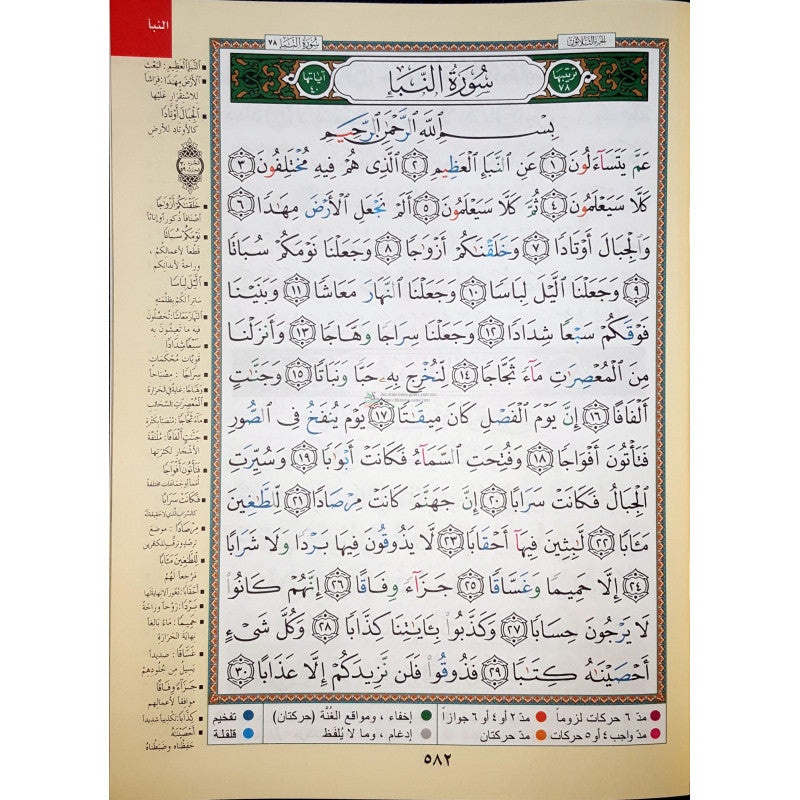 النبأ
الجزء الثلاثون
سورة النبأ ٧٨
ترتيبها ٧٨
سُورَةُ النَّبَإِ
آياتها ٤٠
بِسْمِ ٱللَّهِ ٱلرَّحْمَٰنِ ٱلرَّحِيمِ
عَمَّ يَتَسَآءَلُونَ ١ عَنِ ٱلنَّبَإِ ٱلْعَظِيمِ ٢ ٱلَّذِى هُمْ فِيهِ مُخْتَلِفُونَ ٣
كَلَّا سَيَعْلَمُونَ ٤ ثُمَّ كَلَّا سَيَعْلَمُونَ ٥ أَلَمْ نَجْعَلِ ٱلْأَرْضَ مِهَٰدًا ٦
وَٱلْجِبَالَ أَوْتَادًا ٧ وَخَلَقْنَٰكُمْ أَزْوَٰجًا ٨ وَجَعَلْنَا نَوْمَكُمْ سُبَاتًا
٩ وَجَعَلْنَا ٱلَّيْلَ لِبَاسًا ١٠ وَجَعَلْنَا ٱلنَّهَارَ مَعَاشًا ١١ وَبَنَيْنَا
فَوْقَكُمْ سَبْعًا شِدَادًا ١٢ وَجَعَلْنَا سِرَاجًا وَهَّاجًا ١٣ وَأَنزَلْنَا
مِنَ ٱلْمُعْصِرَٰتِ مَآءً ثَجَّاجًا ١٤ لِّنُخْرِجَ بِهِۦ حَبًّا وَنَبَاتًا ١٥ وَجَنَّٰتٍ
أَلْفَافًا ١٦ إِنَّ يَوْمَ ٱلْفَصْلِ كَانَ مِيقَٰتًا ١٧ يَوْمَ يُنفَخُ فِى ٱلصُّورِ
فَتَأْتُونَ أَفْوَاجًا ١٨ وَفُتِحَتِ ٱلسَّمَآءُ فَكَانَتْ أَبْوَٰبًا ١٩ وَسُيِّرَتِ
ٱلْجِبَالُ فَكَانَتْ سَرَابًا ٢٠ إِنَّ جَهَنَّمَ كَانَتْ مِرْصَادًا ٢١ لِّلطَّٰغِينَ
مَـَٔابًا ٢٢ لَّٰبِثِينَ فِيهَآ أَحْقَابًا ٢٣ لَّا يَذُوقُونَ فِيهَا بَرْدًا وَلَا شَرَابًا
٢٤ إِلَّا حَمِيمًا وَغَسَّاقًا ٢٥ جَزَآءً وِفَاقًا ٢٦ إِنَّهُمْ كَانُوا۟
لَا يَرْجُونَ حِسَابًا ٢٧ وَكَذَّبُوا۟ بِـَٔايَٰتِنَا كِذَّابًا ٢٨ وَكُلَّ شَىْءٍ
أَحْصَيْنَٰهُ كِتَٰبًا ٢٩ فَذُوقُوا۟ فَلَن نَّزِيدَكُمْ إِلَّا عَذَابًا ٣٠
النَّبَإِ الْعَظِيمِ: البَعْث
الْأَرْضَ مِهَٰدًا: فِرَاشًا
للاستقرار عليها
الْجِبَالَ أَوْتَادًا
كالأوتاد للأرض
خَلَقْنَٰكُمْ أَزْوَٰجًا
أصنافًا ذكورا وإناثا
نَوْمَكُمْ سُبَاتًا
قطعا لأعمالكم ،
وراحة لأبدانكم
الَّيْلَ لِبَاسًا
ساترًا لكم بظلمته
النَّهَارَ مَعَاشًا: تُحصّلون
فيه ما تعيشون به
سَبْعًا شِدَادًا
قويّات محكمات
سِرَاجًا : مصباحًا
وَهَّاجًا: غاية في الحرارة
الْمُعْصِرَٰتِ: السّحائب
مَآءً ثَجَّاجًا: منصبًّا بكثرة
جَنَّٰتٍ أَلْفَافًا: ملتفّة
الأشجار لكثرتها
فَتَأْتُونَ أَفْوَاجًا
أممًا أو جماعات مختلفة
فَكَانَتْ سَرَابًا
كالسّراب الذي لا حقيقة له
مِرْصَادًا : موضع
ترصّد وترقّب للكافرين
لِلطَّٰغِينَ مَـَٔابًا
مرجعا لهم
أَحْقَابًا: دهورا لا نهاية لها
بَرْدًا : رَوْحًا وراحة
حَمِيمًا: ماء بالغا
نهاية الحرارة
غَسَّاقًا : صديدا
يسيل من جلودهم
جَزَآءً وِفَاقًا :
موافقا لأعمالهم
كِذَّابًا: تكذيبا شديدا
أَحْصَيْنَٰهُ
حفظناه وضبطناه
مدّ ٦ حركات لزوماً
مدّ ٢ أو ٤ أو ٦ جوازاً
إخفاء ، ومواقع الغُنَّة (حركتان)
تفخيم
مدّ واجب ٤ أو ٥ حركات
مدّ حركتان
إدغام ، وما لا يُلفَظ
قلقلة
٥٨٢